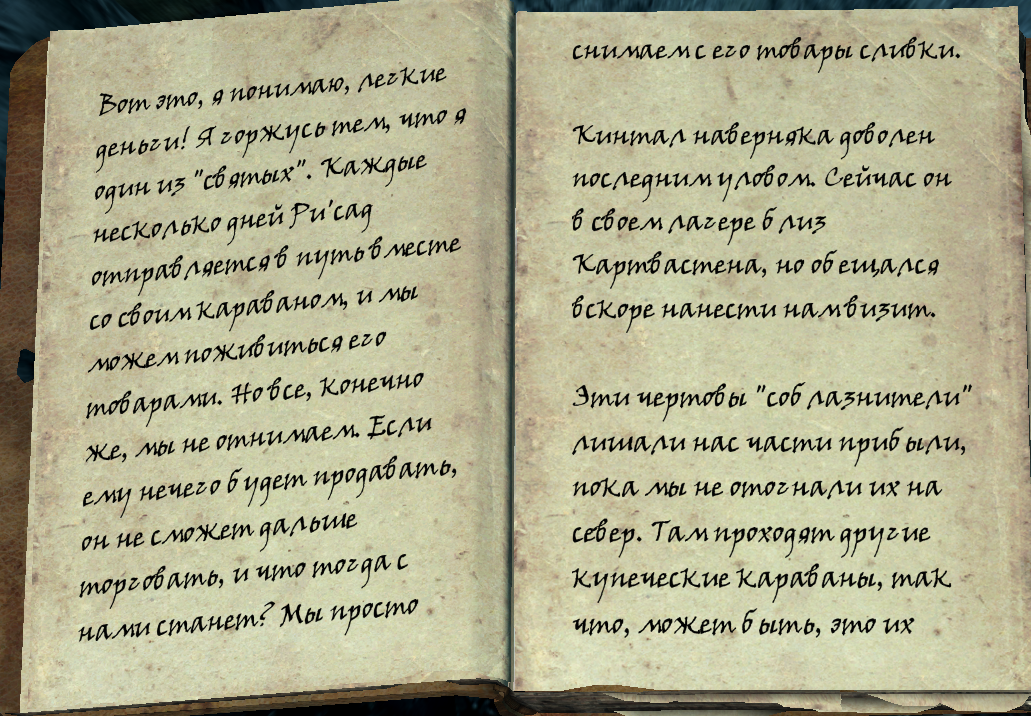 Вот это, я понимаю, легкие
деньги! Я горжусь тем, что я
один из "святых". Каждые
несколько дней Ри'сад
отправляется в путь вместе
со своим караваном, и мы
можем поживиться его
товарами. Но все, конечно
же, мы не отнимаем. Если
ему нечего будет продавать,
он не сможет дальше
торговать, и что тогда с
нами станет? Мы просто
снимаем с его товары сливки.
Кинтал наверняка доволен
последним уловом. Сейчас он
в своем лагере близ
Картвастена, но обещался
вскоре нанести нам визит.
Эти чертовы "соблазнители"
лишали нас части прибыли,
пока мы не отогнали их на
север. Там проходят другие
купеческие караваны, так
что, может быть, это их